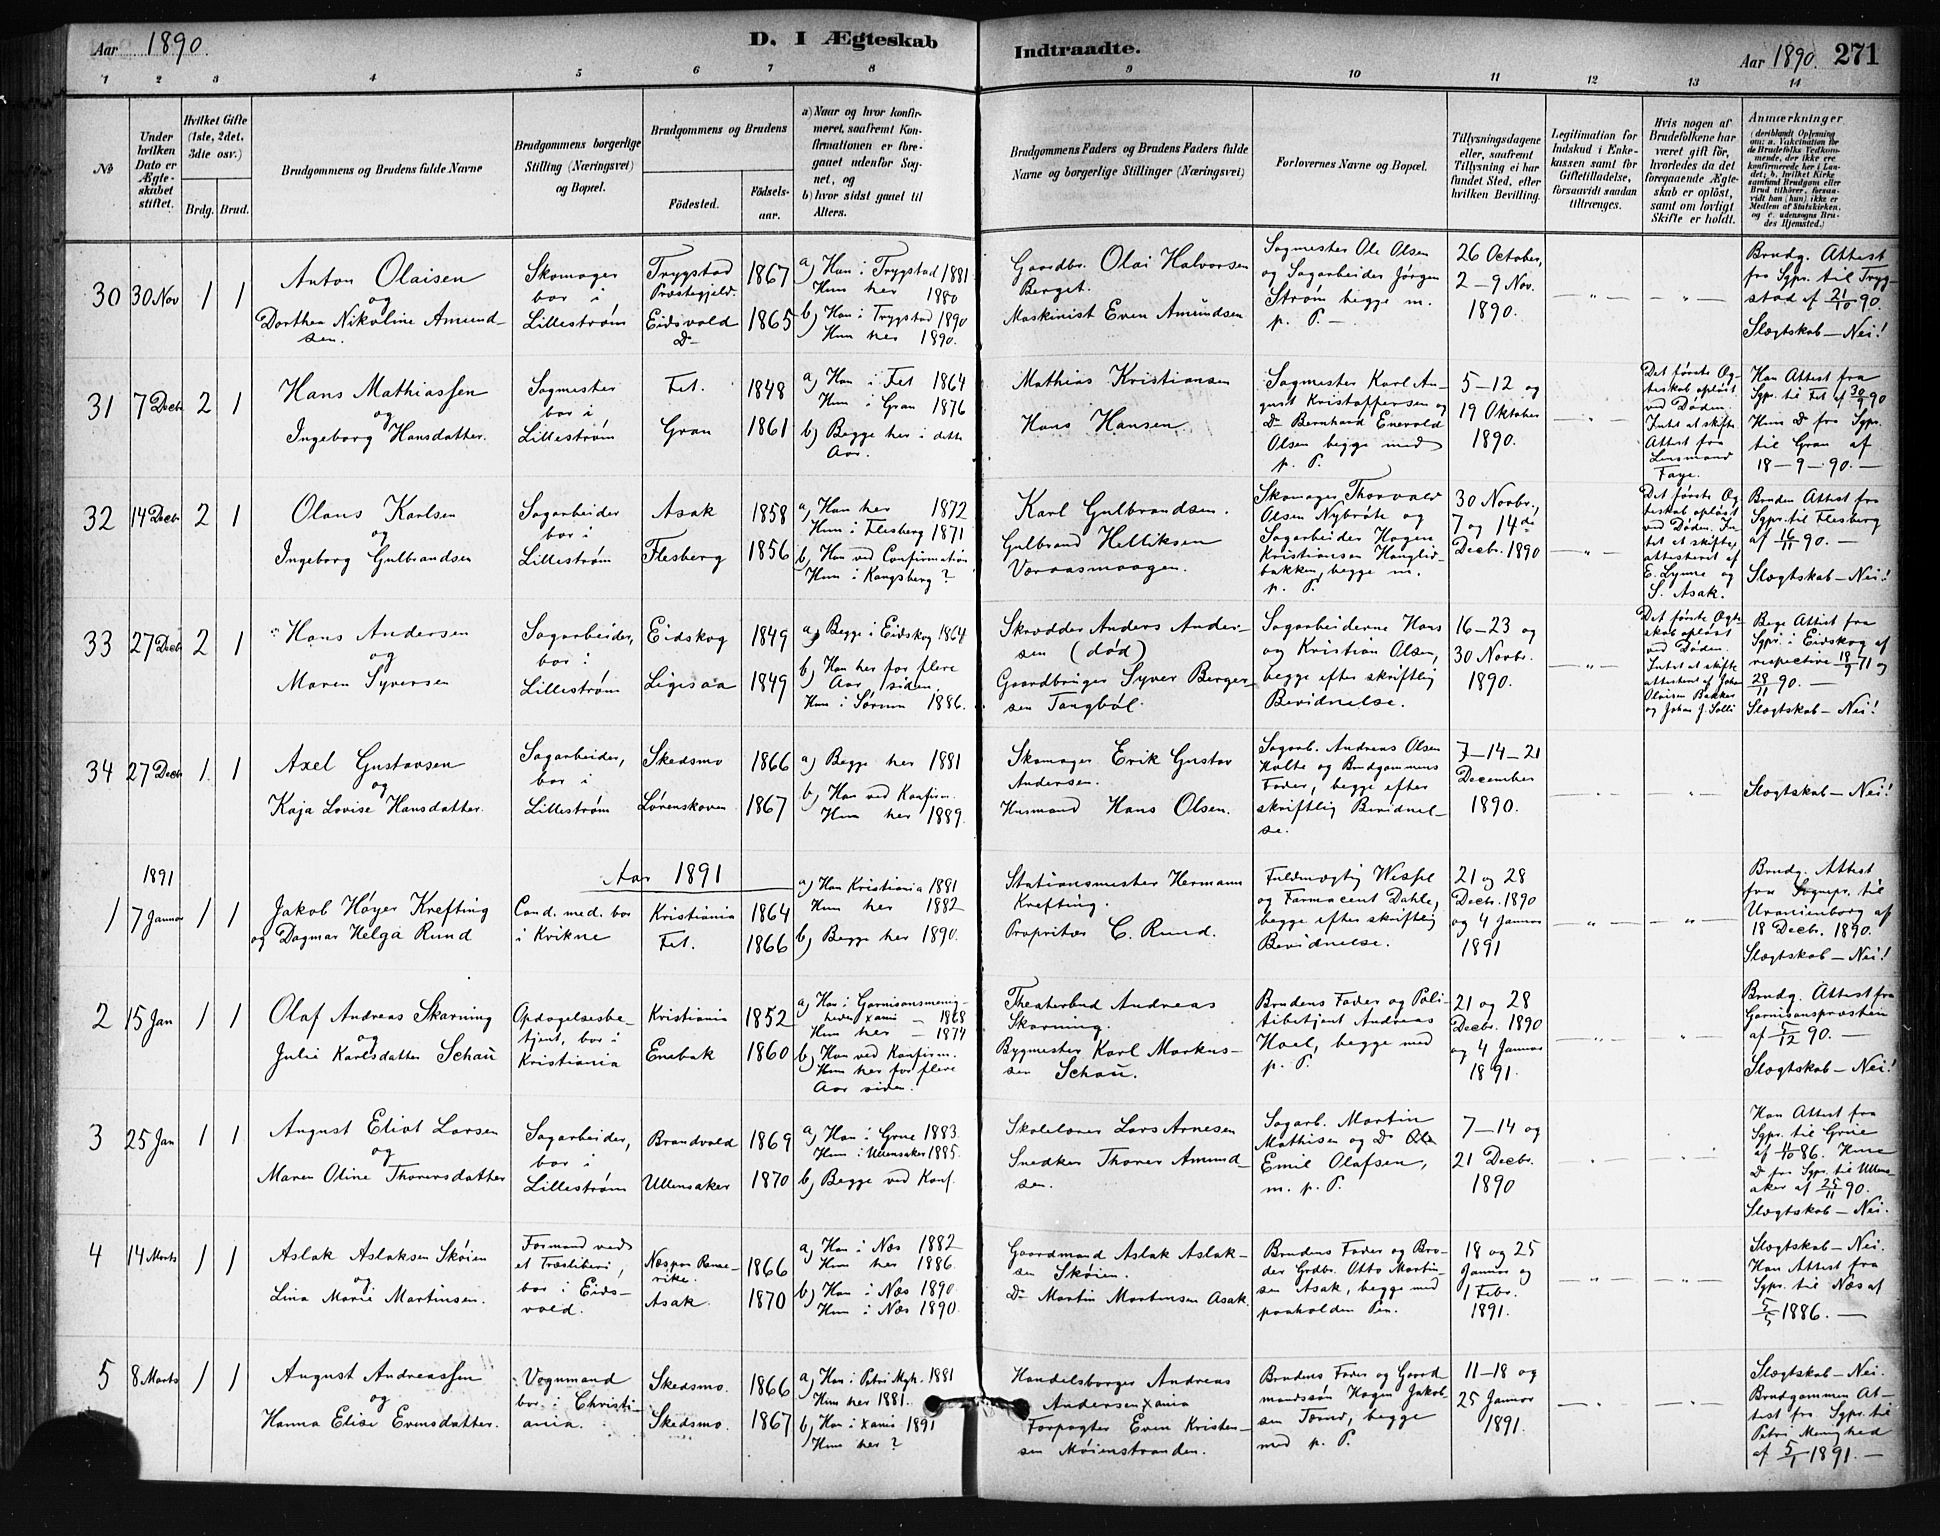 Aar 1890.
D. I Ægteskab
Indtraadte.
Aar 1890. 271
1 2 3 4 5 6 7 8 9 10 11 12 13 14
No
Under hvilken Dato er Ægteskabet stiftet.
Hvilket Gifte (1ste, 2det, 3dte osv.)
Brdg. Brud.
Brudgommens og Brudens fulde Navne
Brudgommens borgerlige Stilling (Næringsvei) og Bopæl.
Brudgommens og Brudens
Födested.
Födselsaar.
a) Naar og hvor konfirmeret, saafremt Konfirmationen er foregaaet udenfor Sognet, og
b) hvor sidst gaaet til Alters.
Brudgommens Faders og Brudens Faders fulde Navne og borgerlige Stillinger (Næringsvei)
Forlovernes Navne og Bopæl.
Tillysningsdagene eller, saafremt Tillysning ei har fundet Sted, efter hvilken Bevilling.
Legitimation for Indskud i Enkekassen samt for Giftetilladelse, forsaavidt saadan tiltrænges.
Hvis nogen af Brudefolkene har været gift för, hvorledes da det foregaaende Ægteskab er oplöst, samt om lovligt Skifte er holdt.
Anmærkninger
(deriblandt Oplysning om: a. Vakcination for de Brudefolks Vedkommende, der ikke ere konfirmerede her i Landet; b. hvilket Kirkesamfund Brudgom eller Brud tilhörer, forsaavidt han (hun) ikke er Medlem af Statskirken, og c. udensogns Brudes Hjemsted.)
30 30 Nov 1 1
Anton Olaisen
og
Dorthea Nikoline Amundsen.
Skomager
bor i
Lillestrøm
Trygstad
Præstegjeld.
Eidsvold
Do
1867
1865
a) Han i Trygstad 1881
Hun her 1880
b) Han i Trygstad 1890
Hun her 1890.
Gaardbr. Olai Halvorsen
Berget.
Maskinist Even Amundsen
Sagmester Ole Olsen
og Sagarbeider Jørgen
Strøm begge m.
p. P. —
26 October,
2 – 9 Nov.
1890.
Brudg. Attest
fra Sgpr. til Trygstad
af 21/10 90.
Slægtskab – Nei!
31 7 Decb 2 1
Hans Mathiassen
og
Ingeborg Hansdatter.
Sagmester
bor i
Lillestrøm
Fet.
Gran
1848
1861
a) Han i Fet 1864
Hun i Gran 1876
b) Begge her i dette
Aar.
Mathias Kristiansen
Hans Hansen
Sagmester Karl August
Kristoffersen og
Do Bernhard Enevold
Olsen begge med
p. P.
5–12 og
19 Oktober
1890.
Det første Ægteskab opløst
ved Døden.
Intet at skifte
Attest fra
Lensmand
Faye.
Han Attest fra
Sgpr. til Fet af 30/9 90
Hun Do fra Sgpr.
til Gran af
18–9–90. —
32 14 Decb 2 1
Olaus Karlsen
og
Ingeborg Gulbrandsen
Sagarbeider
bor i
Lillestrøm
Asak
Flesberg
1858
1856
a) Han her 1872
Hun i Flesberg 1871
b) Han ved Confirmation
Hun i Kongsberg?
Karl Gulbrandsen.
Gulbrand Helliksen
Væraasmoagen.
Skomager Thorvald
Olsen Nybråte og
Sagarbeider Hagen
Kristiansen Hauglibakken,
begge m.
p. P.
30 Novbr.,
7 og 14de
Decbr. 1890
Det første Ægteskab opløst
ved Døden. Intet at skifte,
attesteret af
E. Lynne og
S. Asak.
Bruden Attest fra
Sgpr. til Flesberg
af 16/11 90. —
Slægtskab – Nei!
33 27 Decb 2 1
Hans Andersen
og
Maren Syversen
Sagarbeider,
bor i
Lillestrøm
Eidskog
Ligisaa
1849
1849
a) Begge i Eidskog 1864
b) Han her for flere
Aar siden.
Hun i Sørum 1886.
Skrædder Anders Andersen
(død)
Gaardbruger Syver Bergersen
Tangböl.
Sagarbeiderne Hans
og Kristian Olsen,
begge efter skriftlig
Bevidnelse.
16–23 og
30 Novbr.
1890.
Det første Ægteskab opløst
ved Døden.
Intet at skifte
attesteret af Johan
Olaisen Bakker
og Johan J. Solli
Bege Attest fra
Sgpr. i Eidskog af
respective 18/9 71 og
28/11 90. —
Slægtskab – Nei!
34 27 Decb 1. 1
Axel Gustavsen
og
Kaja Lovise Hansdatter.
Sagarbeider,
bor i
Lillestrøm
Skedsmo
Lørenskoven
1866
1867
a) Begge her 1881
b) Han ved Konfirm.
Hun her 1889.
Skomager Erik Gustav
Andersen.
Husmand Hans Olsen.
Sagarb. Andreas Olsen
Holte og Brudgommens
Fader, begge efter
skriftlig Bevidnelse.
7–14–21
December
1890.
Slægtskab – Nei!
Aar 1891
1891
1 7 Januar 1 1
Jakob Høyer Krefting
og Dagmar Helga Rund
Cand. med. bor
i Kvikne
Kristiania
Fet.
1864
1866
a) Han Kristiania 1881
Hun her 1882
b) Begge her 1890.
Stationsmester Hermann
Krefting.
Propritær C. Rund.
Fuldmægtig
og Farmaceut Dahle,
begge efter skriftlig
Bevidnelse.
21 og 28
Decbr. 1890
og 4 Januar
1891
Brudg. Attest
fra Sognepr. til
Uranienborg af
18 Decbr. 1890.
Slægtskab – Nei!
2 15 Jan 1 1
Olaf Andreas Skarning
og
Julie Karlsdatter Schau
Opdagelsesbetjent,
bor i
Kristiania
Kristiania
Enebak
1852
1860
a) Han i Garnisonsmenigheden
Xania – 1868
Hun her – 1874
b) Han ved Konfirm.
Hun her for flere
Aar siden.
Theaterbud Andreas
Skarning.
Bygmester Karl Markussen
Schau.
Brudens Fader og Politibetjent
Andreas
Hoel, begge med
p. P.
21 og 28
Decbr. 1890
og 4 Januar
1891.
Brudg. Attest fra
Garnisonspræsten
af 5/12 90. —
Slægtskab – Nei!
3 25 Jan 1 1
August Eliot Larsen
og
Maren Oline Thorersdatter
Sagarbeider,
bor i
Lillestrøm
Brandvold
Ullensaker
1869
1870
a) Han i Grue 1883.
Hun i Ullensaker 1885.
b) Begge ved Konf.
Skolelærer Lars Arnesen
Snedker Thorer Amundsen.
Sagarb. Martin
Mathisen og Do Ole
Emil Olafsen,
m. p. P.
7–14 og
21 Decbr.
1890
Han Attest fra
Sgpr. til Grue
af 11/10 86. Hun
Do fra Sgpr. til Ullensaker
af 25/11 90.
Slægtskab – Nei.
4 14 Marts 1 1
Aslak Aslaksen Skøien
og
Lina Marie Martinsen.
Formand ved
et Træsliberi,
bor i Eidsvold.
Næs paa Romerike.
Asak.
1866
1870
a) Han i Næs 1882
Hun her 1886.
b) Han i Næs 1890.
Hun i Næs 1890.
Gaardmand Aslak Aslaksen
Skøien.
Do Martin Martinsen Asak.
Brudens Fader og Broder
Grdbr. Otto Martinsen
Asak, begge med
paaholden Pen.
18 og 25
Januar og
1 Febr.
1891.
Slægtskab – Nei.
Han Attest fra
Sgpr. til Næs af
5/5 1886. —
5 8 Marts 1 1
August Andreassen
og
Hanna Elise Evensdatter.
Vognmand
bor i Christiania.
Skedsmo.
Skedsmo.
1866
1867
a) Han i Petri Mgh. 1881
Hun her 1881.
b) Han i Xania 1891
Hun her?
Handelsborger Andreas
Andersen Xania
Forpagter Even Kristensen
Møienstranden.
Brudens Fader og Gaardmandssøn
Hagen Jakobsen
Tærud, begge
med p. P.
11–18 og
25 Januar
1891.
Slægtskab – Nei.
Brudgommen Attest
fra Sgpr. til
Petri Menighed
af 5/1 1891. —